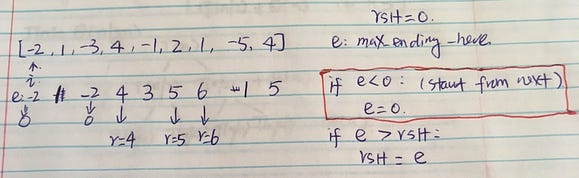 rSH=0.
[-2, 1, -3, 4, -1, 2, 1, -5, 4]
e: max ending-here.
i
e:-2 -2 4 3 5 6 1 5
if e<0: (start from next)
0 0
e=0.
r=4 r=5 r=6
if e > rSH:
rSH = e